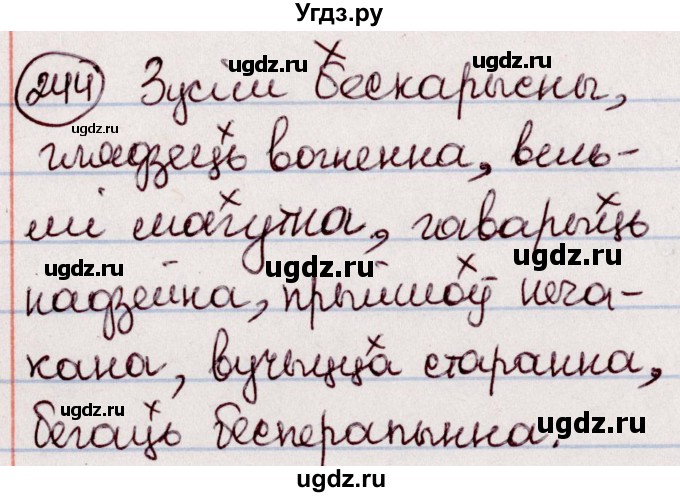 Угдз.ру
244 Зусім бескарысны,
глядзець вогненна, вель-
мі магутна, гаварыць
надзейна, прыйшоў неча-
кана, вучыцца старанна,
бегаць бесперапынна.
ugdz.ru
ugdz.ru
ugdz.ru
ugdz.ru
ugdz.ru
ugdz.ru
ugdz.ru
ugdz.ru
ugdz.ru
ugdz.ru
ugdz.ru
ugdz.ru
ugdz.ru
ugdz.ru